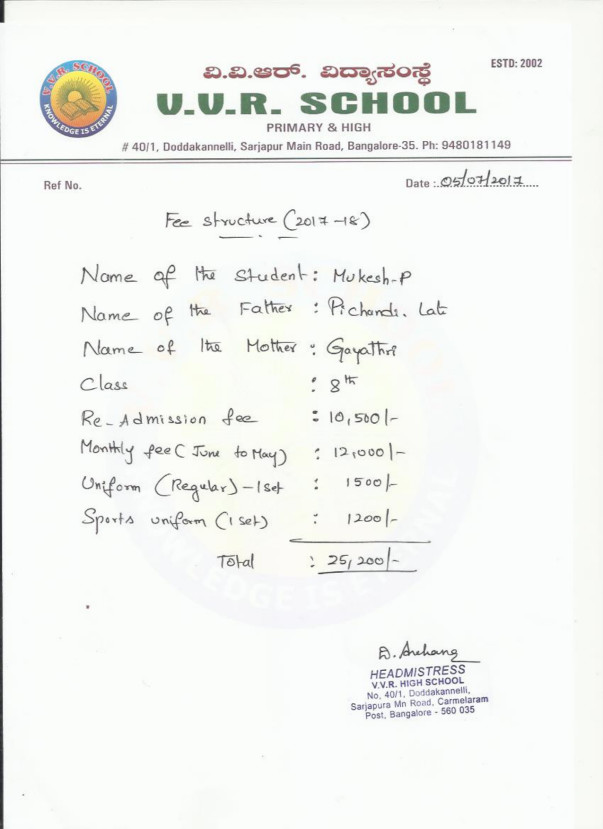 ವಿ.ವಿ.ಆರ್. ವಿದ್ಯಾಸಂಸ್ಥೆ
ESTD: 2002
V.V.R. SCHOOL
KNOWLEDGE IS ETERNAL
V.V.R. SCHOOL
PRIMARY & HIGH
# 40/1, Doddakannelli, Sarjapur Main Road, Bangalore-35. Ph: 9480181149
Ref No.
Date : 05/07/2017
Fee structure (2017-18)
Name of the Student : Mukesh-P
Name of the Father : Pichandi. Late
Name of the Mother : Gayathri
Class : 8th
Re-Admission fee : 10,500/-
Monthly fee (June to May) : 12,000/-
Uniform (Regular) - 1set : 1500/-
Sports uniform (1 set) : 1200/-
Total : 25,200/-
D. Archana
HEADMISTRESS
V.V.R. HIGH SCHOOL
No, 40/1, Doddakannelli,
Sarjapura Mn Road, Carmelaram
Post, Bangalore - 560 035